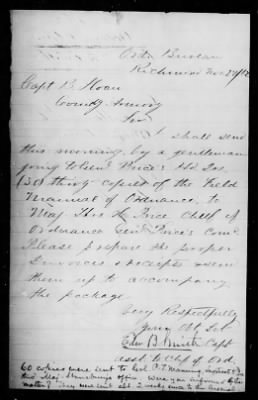 Ord. Bureau
Richmond Nov 27/62
Capt B. Sloan
County Armory
Sir
I shall send
this morning by a gentleman
going to Genl Price's Hd Qrs
(30) thirty copies of the Field
Manual of Ordnance, to
Maj. Price Chief of
Ordnance Genl Price's Com'd
Please prepare the proper
Invoices & receipts & send
them up to accompany
the package.
Very Respectfully
Your Obt Svt
B. Smith Capt
asst to Chf of Ord.
60 copies were sent to Col. Manning
this office. Were you informed of the
matter? They were sent abt 2 weeks since to the